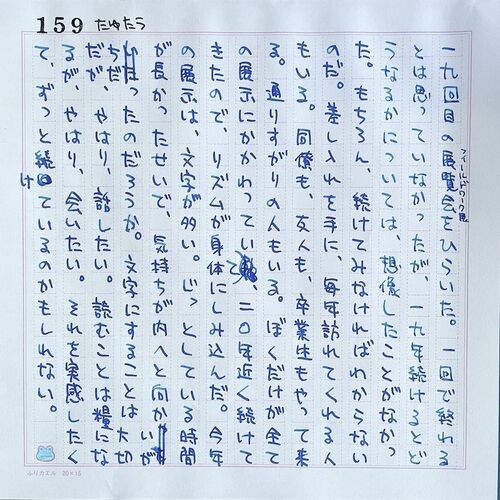 159 たゆたう
フィールドワーク展
一九回目の展覧会をひらいた。一回で終わる
とは思っていなかったが、一九年続けるとど
うなるかについては、想像したことがなかっ
た。もちろん、続けてみなければわからない
のだ。差し入れを手に、毎年訪れてくれる人
もいる。同僚も、友人も、卒業生もやって来
る。通りすがりの人もいる。ぼくだけが全て
の展示にかかわっていて、二〇年近く続けて
きたので、リズムが身体にしみ込んだ。今年
の展示は、文字が多い。じっとしている時間
が長かったせいで、気持ちが内へと向かいが
ちだったのだろうか。文字にすることは大切
だが、やはり、話したい。読むことは糧にな
るが、やはり、会いたい。それを実感したく
て、ずっと続けているのかもしれない。
ふりカエル 20×15